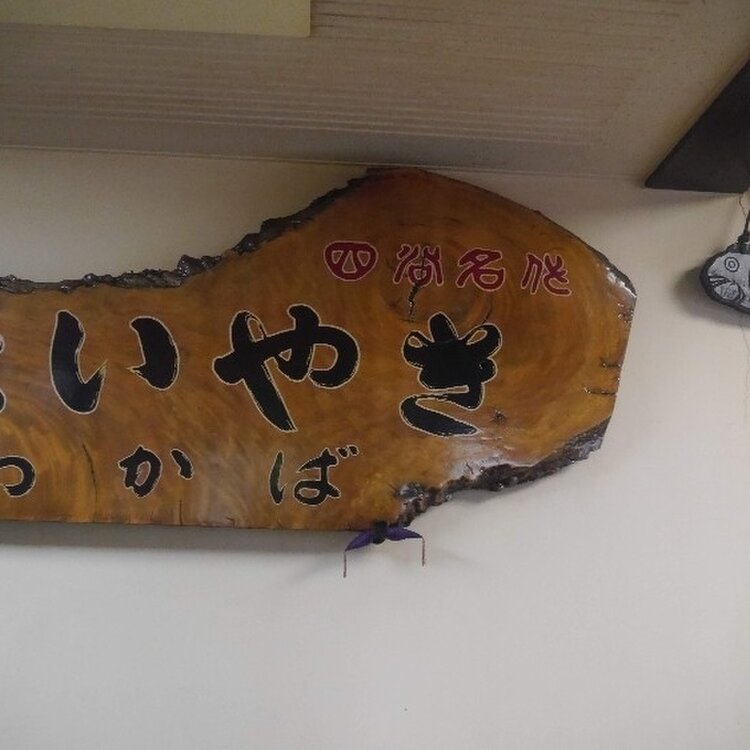 四谷名代
いやき
わかば